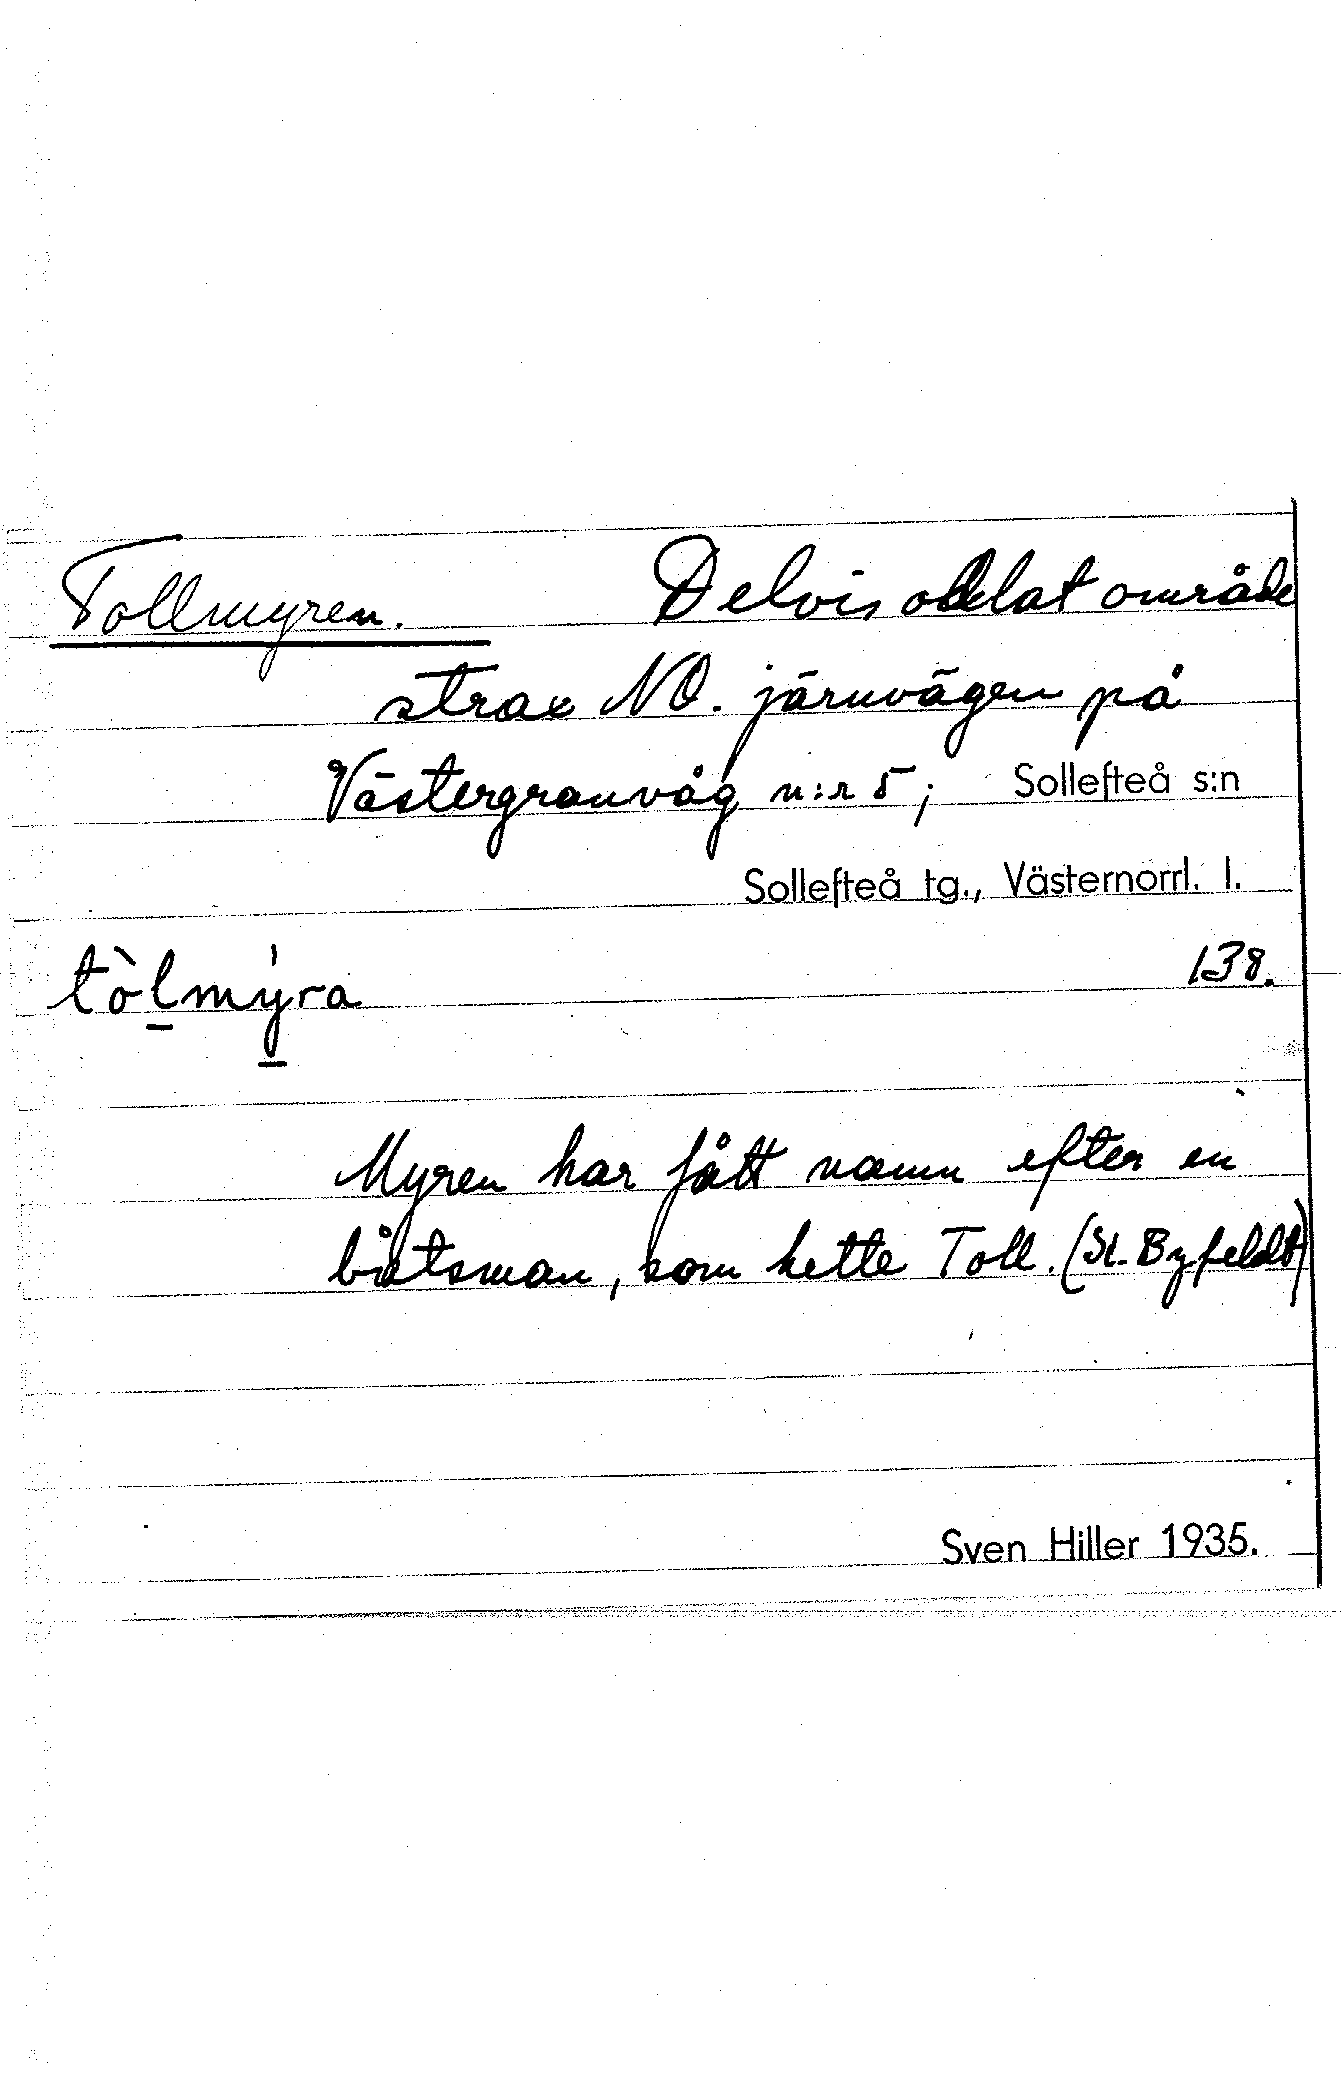 Tollmyren. Delvis odlat område
strax NO. järnvägen på
Västergranvåg n:r 5; Sollefteå s:n
Sollefteå tg., Västernorrl. l.
tòlmýra 138.
Myren har fått namn efter en
båtsman, som hette Toll. (St. Byfeldt)
Sven Hiller 1935.